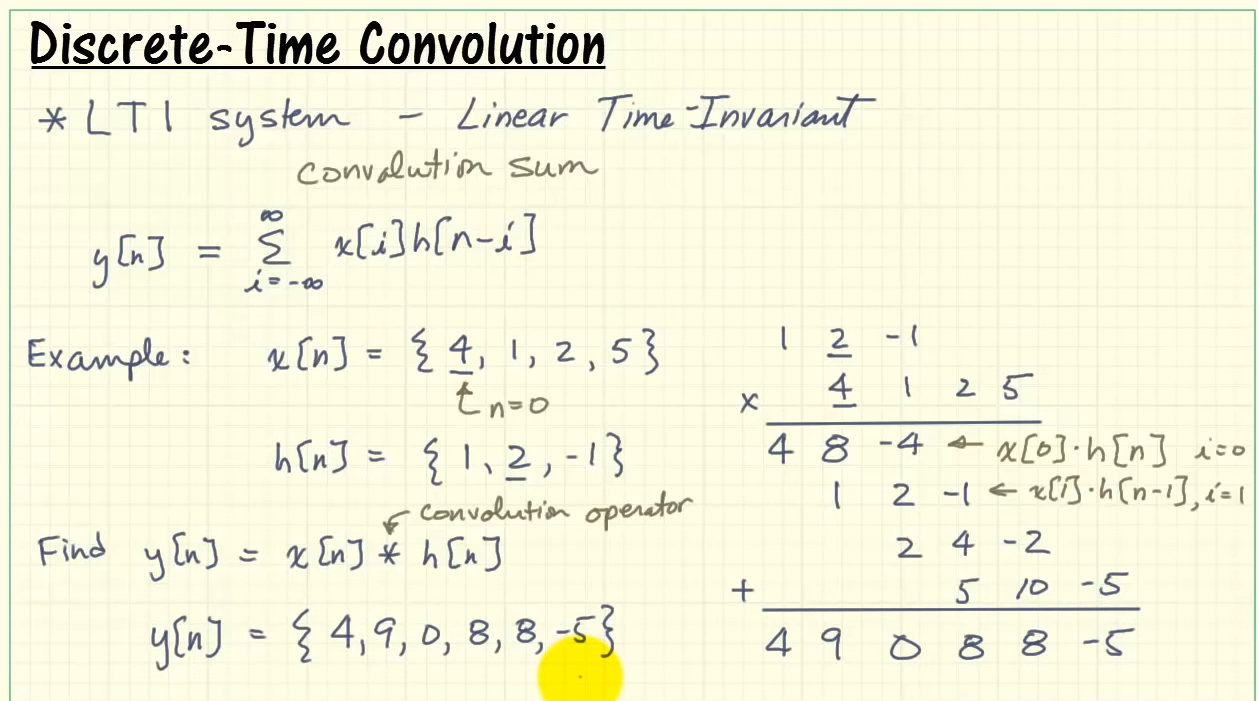 Discrete-Time Convolution
* LTI system - Linear Time-Invariant
convolution sum
y[n] = ∞ Σ i=-∞ x[i]h[n-i]
Example: x[n] = { 4, 1, 2, 5 }
↑ n=0
h[n] = { 1, 2, -1 }
convolution operator
Find y[n] = x[n] * h[n]
y[n] = { 4, 9, 0, 8, 8, -5 }
1 2 -1
x 4 1 2 5
4 8 -4 ← x[0]·h[n] i=0
1 2 -1 ← x[1]·h[n-1], i=1
2 4 -2
+ 5 10 -5
4 9 0 8 8 -5